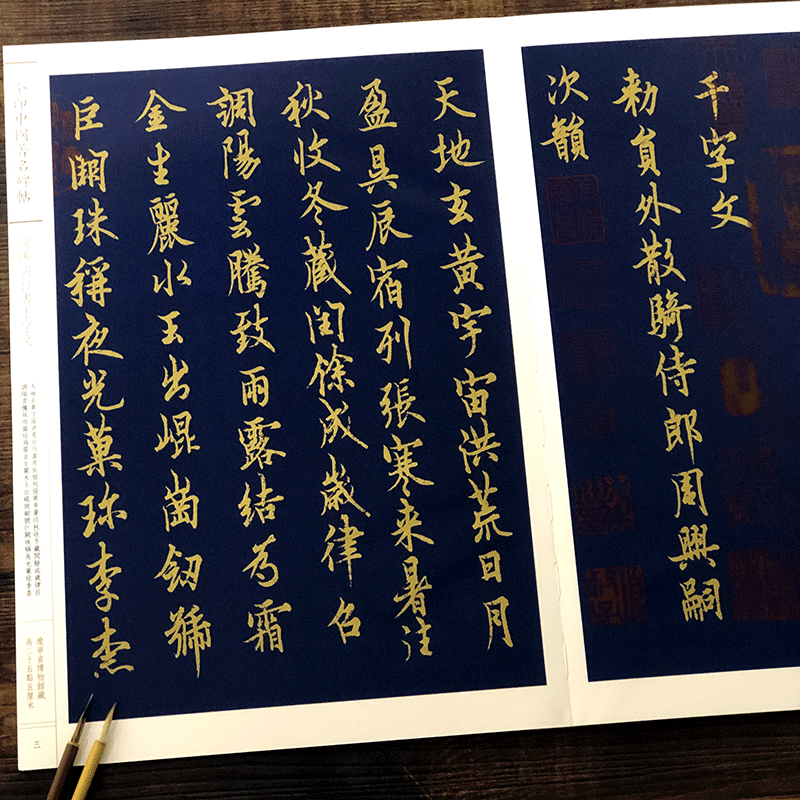 千字文
勑員外散騎侍郎周興嗣
次韻
天地玄黃宇宙洪荒日月
盈昃辰宿列張寒来暑往
秋收冬藏閏餘成歲律召
調陽雲騰致雨露結為霜
金生麗水玉出崐崗劒號
巨闕珠稱夜光菓珎李柰
中國著名碑帖
遼寧省博物館藏
高二十五點五厘米
三